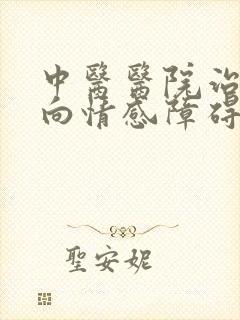 中醫醫院治
向情感障碍
聖安妮